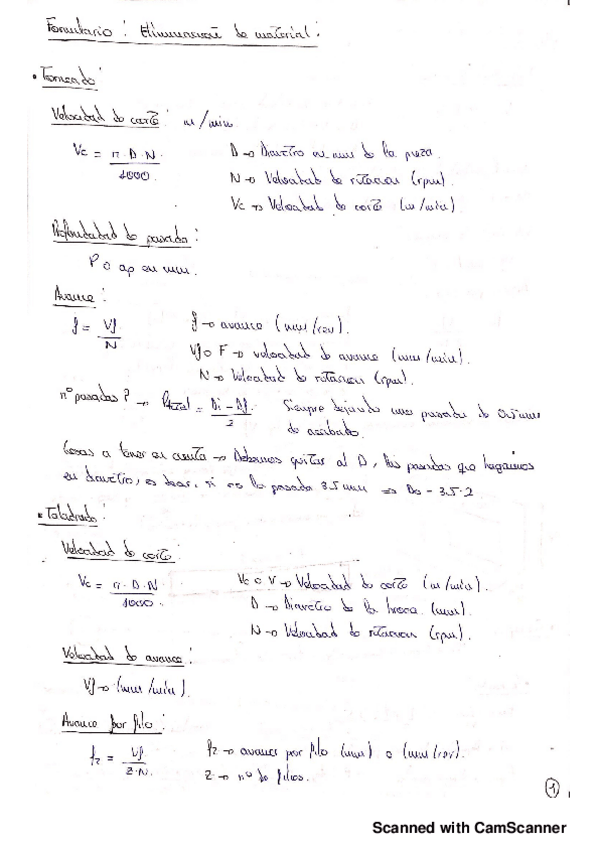 Formulario: Eliminación de material:
• Torneado:
Velocidad de corte: m/min
Vc = π·D·N / 1000
D → Diametro en mm de la pieza.
N → Velocidad de rotacion (rpm).
Vc → Velocidad de corte (m/min)
Profundidad de pasada:
P o ap en mm.
Avance:
f = Vf / N
f → avance (mm/rev).
Vf o F → velocidad de avance (mm/min).
N → Velocidad de rotacion (rpm).
nº pasadas? → Ptotal = Di - Df / 2 Siempre dejando una pasada de 0.5mm
de acabado.
Cosas a tener en cuenta → Debemos quitar al D, las pasadas que hagamos
en diametro, es decir, si es la pasada 3.5 mm ⇒ Do - 3.5·2
• Taladrado:
Velocidad de corte:
Vc = π·D·N / 1000.
Vc o V → Velocidad de corte (m/min).
D → Diametro de la broca (mm).
N → Velocidad de rotacion (rpm).
Velocidad de avance:
Vf → (mm/min).
Avance por filo:
fz = Vf / Z·N.
fz → avance por filo (mm) o (mm/rev).
Z → nº de filos.
1
Scanned with CamScanner